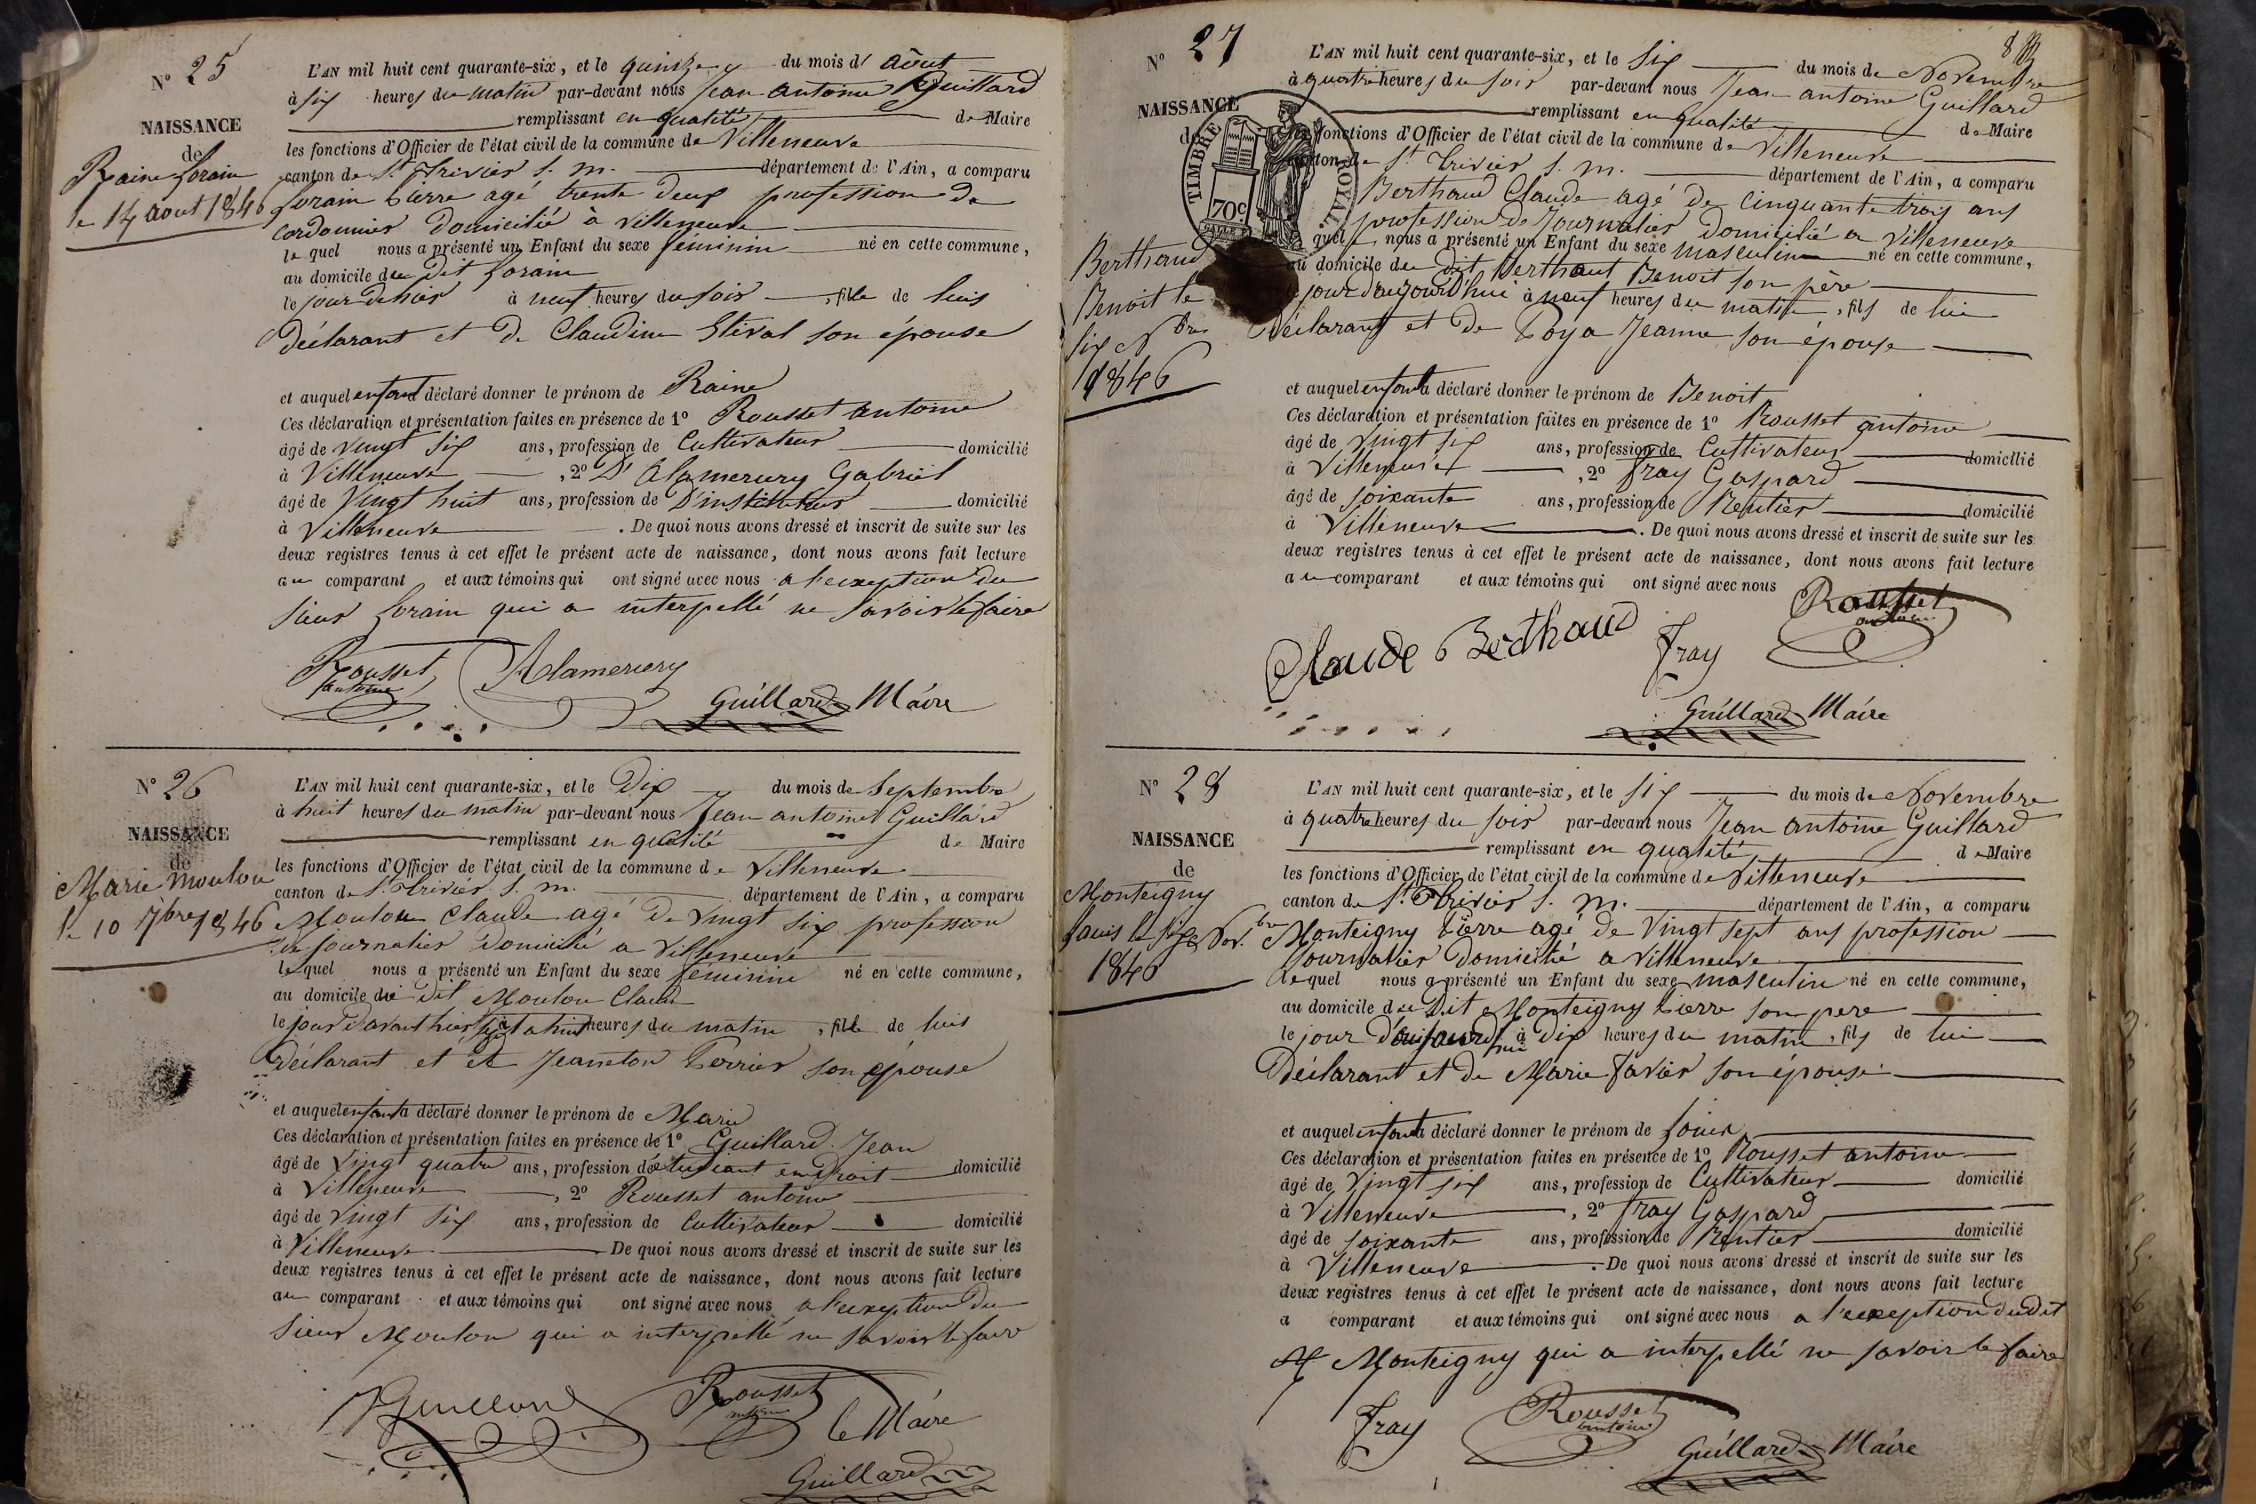 N° 25
NAISSANCE
de
Raine Lorain
le 14 aout 1846
L'AN mil huit cent quarante-six, et le quinze du mois d' Aôut
à six heures du matin par-devant nous Jean antoine Guillard
remplissant en qualité de Maire
les fonctions d'Officier de l'état civil de la commune de Villeneuve
canton de St Trivier S. M. département de l'Ain, a comparu
Lorain Pierre agé trente deux profession de
cordonnier domicilié à Villeneuve
le quel nous a présenté un Enfant du sexe féminin né en cette commune,
au domicile du dit Lorain
le jour Dehier à neuf heures du soir , fille de luis
déclarant et de Claudine Stival son épouse
et auquel enfant déclaré donner le prénom de Raine
Ces déclaration et présentation faites en présence de 1° Rousset antoine
âgé de vingt six ans, profession de Cultivateur domicilié
à Villeneuve , 2° Dt Alamercery Gabriel
âgé de Vingt huit ans, profession de D'instituteur domicilié
à Villeneuve . De quoi nous avons dressé et inscrit de suite sur les
deux registres tenus à cet effet le présent acte de naissance, dont nous avons fait lecture
au comparant et aux témoins qui ont signé avec nous a l'exception du
Sieur Lorain qui a interpellé ne savoir le faire
Rousset antoine Alamercery
Guillard Maire
N° 26
NAISSANCE
de
Marie Moulon
le 10 7bre 1846
L'AN mil huit cent quarante-six, et le Dix du mois de Septembre
à huit heures du matin par-devant nous Jean antoine Guillard
remplissant en qualité de Maire
les fonctions d'Officier de l'état civil de la commune de Villeneuve
canton de St Trivier S. M. département de l'Ain, a comparu
Moulon Claude agé De Vingt six profession
de journalier Domicilié a Villeneuve
le quel nous a présenté un Enfant du sexe féminin né en cette commune,
au domicile du dit Moulon Claude
le jour Davant hier à huit heures du matin , fille de luis
Déclarant et de Jeanneton Perrier son épouse
et auquel enfant a déclaré donner le prénom de Marie
Ces déclaration et présentation faites en présence de 1° Guillard Jean
âgé de Vingt quatre ans, profession d'étudiant en Droit domicilié
à Villeneuve , 2° Rousset antoine
âgé de Vingt six ans, profession de Cultivateur domicilié
à Villeneuve De quoi nous avons dressé et inscrit de suite sur les
deux registres tenus à cet effet le présent acte de naissance, dont nous avons fait lecture
au comparant et aux témoins qui ont signé avec nous a l'exception Du
Sieur Moulon qui a interpellé ne savoir le faire
JGuillard Rousset antoine
le Maire
Guillard
N° 27
NAISSANCE
de
Berthaud
Benoit le
six Nbre
1846
TIMBRE ROYAL
70c
L'AN mil huit cent quarante-six, et le Six du mois de Novembre
à quatre heures du soir par-devant nous Jean antoine Guillard
remplissant en qualité de Maire
les fonctions d'Officier de l'état civil de la commune de Villeneuve
canton de St Trivier S. M. département de l'Ain, a comparu
Berthaud Claude agé de Cinquante trois ans
profession de Journalier domicilié a Villeneuve
quel nous a présenté un Enfant du sexe masculin né en cette commune,
au domicile du dit Berthaut Benoit son père
jour d'aujourd'hui à neuf heures du matin , fils de lui
Déclarant et de Poya Jeanne son épouse
et auquel enfant a déclaré donner le prénom de Benoit
Ces déclaration et présentation faites en présence de 1° Rousset antoine
âgé de Vingt six ans, profession de Cultivateur domicilié
à Villeneuve , 2° Fray Gaspard
âgé de soixante ans, profession de Rentier domicilié
à Villeneuve . De quoi nous avons dressé et inscrit de suite sur les
deux registres tenus à cet effet le présent acte de naissance, dont nous avons fait lecture
au comparant et aux témoins qui ont signé avec nous
Rousset antoine
Claude Berthaud Fray
Guillard Maire
N° 28
NAISSANCE
de
Monteigny
Louis le six Nov.bre
1846
L'AN mil huit cent quarante-six, et le six du mois de Novembre
à quatre heures du soir par-devant nous Jean antoine Guillard
remplissant en qualité de Maire
les fonctions d'Officier de l'état civil de la commune de Villeneuve
canton de St Trivier S. M. département de l'Ain, a comparu
Monteigny Pierre agé de Vingt sept ans profession
Journalier Domicilié a Villeneuve
le quel nous a présenté un Enfant du sexe masculin né en cette commune,
au domicile du Dit Monteigny Pierre son pere
le jour d'aujourd'hui à Dix heures du matin , fils de lui
Déclarant et de Marie Favier son épouse
et auquel enfant a déclaré donner le prénom de Louis
Ces déclaration et présentation faites en présence de 1° Rousset antoine
âgé de Vingt six ans, profession de Cultivateur domicilié
à Villeneuve , 2° Fray Gaspard
âgé de soixante ans, profession de Rentier domicilié
à Villeneuve . De quoi nous avons dressé et inscrit de suite sur les
deux registres tenus à cet effet le présent acte de naissance, dont nous avons fait lecture
a comparant et aux témoins qui ont signé avec nous a l'exception dudit
Monteigny qui a interpellé ne savoir le faire
Fray Rousset antoine
Guillard Maire